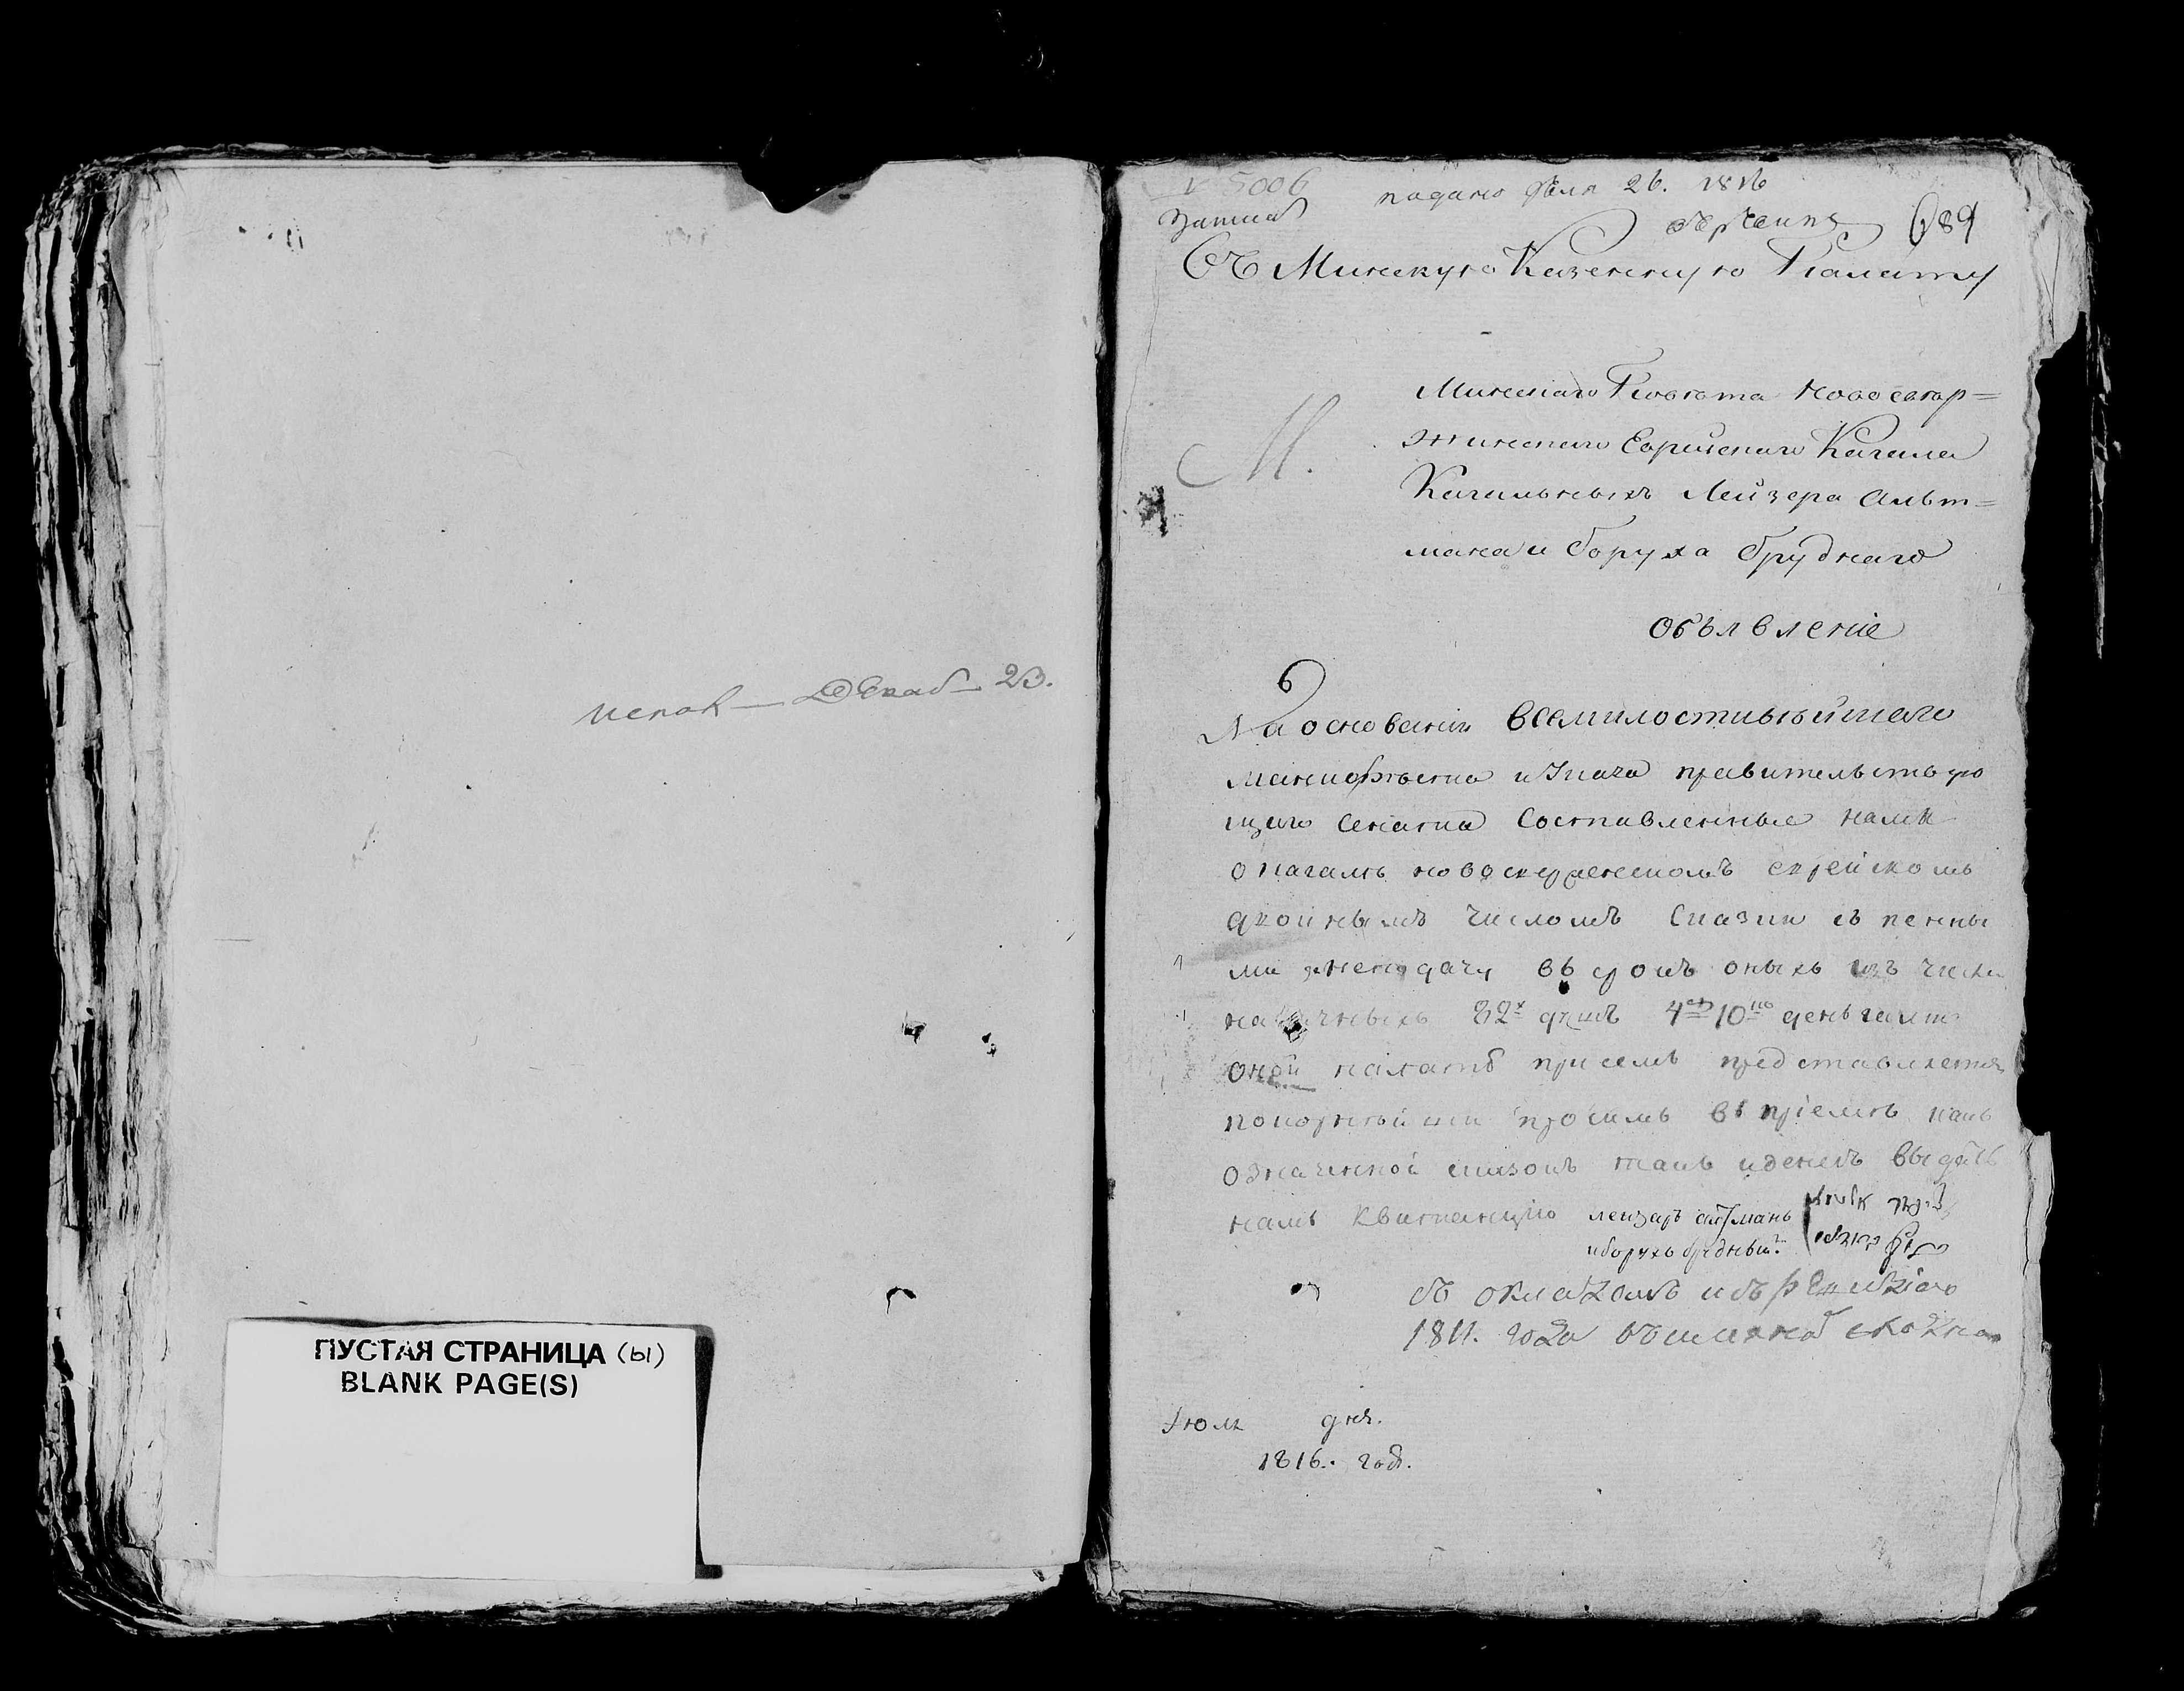 исполн — Декаб — 23.
ПУСТАЯ СТРАНИЦА (ы)
BLANK PAGE(S)
5006 подано 26. 1816
689
Въ Минскую Казенную Палату
М.
Минскаго Повѣта Новосвер=
жинскаго Еврейскаго Кагала
Кагальныхъ Лейзера Альт=
мана и Боруха Бруднаго
Объявленіе
6
На основаніи Всемилостивѣйшаго
Манифеста и Указа правительствую
щаго Сената Составленные нами
о кагалѣ новосверженскомъ еврейскомъ
двойнымъ числомъ Сказки съ пенны
ми за неподачу въ срокъ оныхъ изъ числа
наличныхъ 82х душъ 10 деньгами
оной палатѣ при семъ представляется
покорнѣйши просимъ въ пріемѣ какъ
означенной сказокъ такъ и денегъ выдать
намъ Квитанцію лейзаръ алтманъ
и борухъ брудный
съ окладомъ и съ
1811. года сходна
Іюля дня.
1816. года.